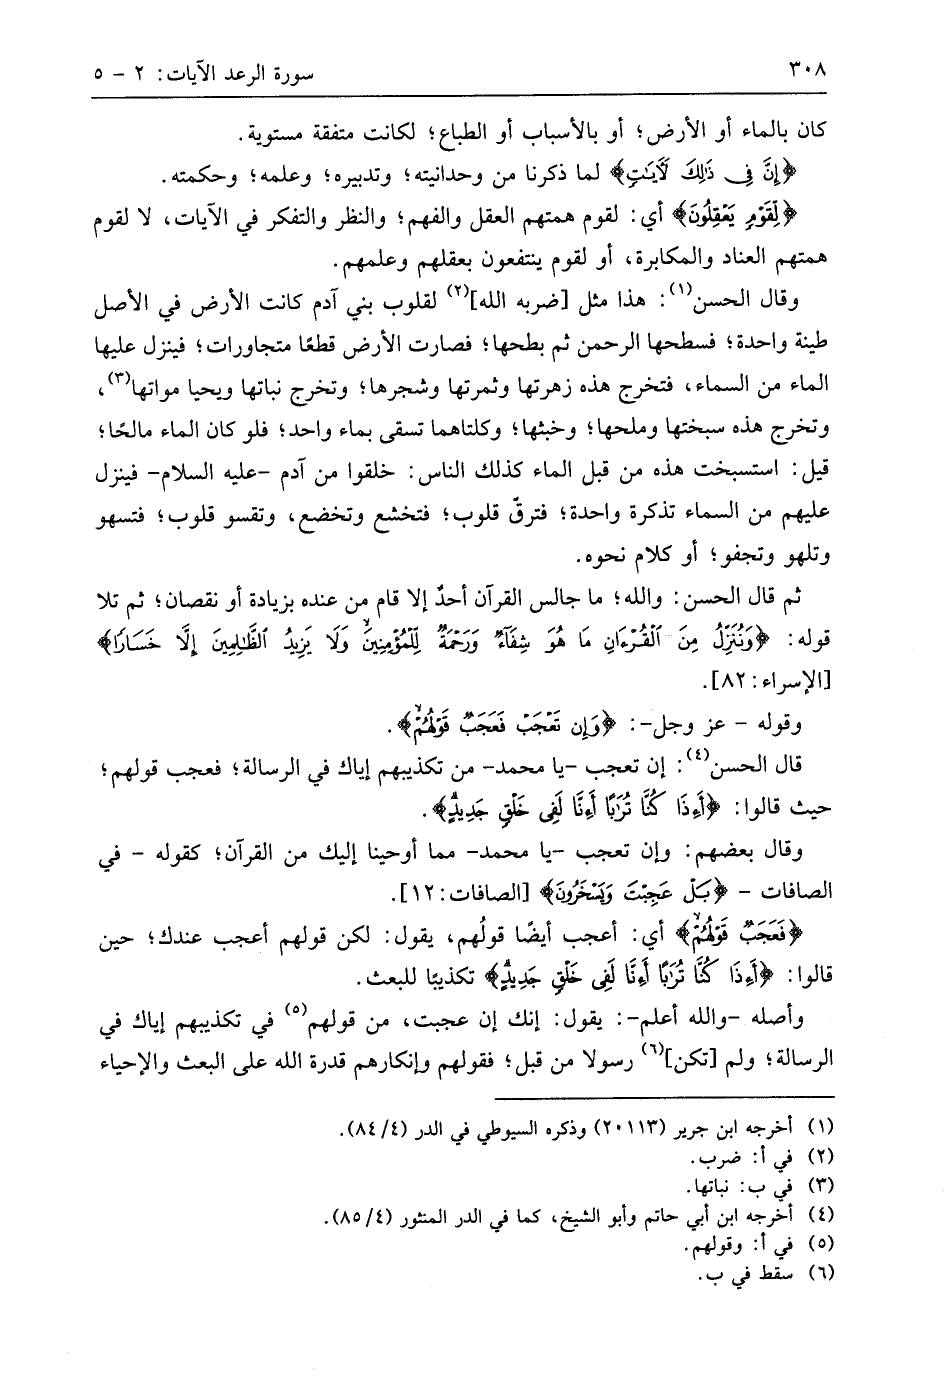 ٣٠٨
سورة الرعد الآيات: ٢ - ٥
كان بالماء أو الأرض؛ أو بالأسباب أو الطباع؛ لكانت متفقة مستوية.
﴿إِنَّ فِي ذَٰلِكَ لَآيَاتٍ﴾ لما ذكرنا من وحدانيته؛ وتدبيره؛ وعلمه؛ وحكمته.
﴿لِّقَوْمٍ يَعْقِلُونَ﴾ أي: لقوم همتهم العقل والفهم؛ والنظر والتفكر في الآيات، لا لقوم
همتهم العناد والمكابرة، أو لقوم ينتفعون بعقلهم وعلمهم.
وقال الحسن(١): هذا مثل [ضربه الله](٢) لقلوب بني آدم كانت الأرض في الأصل
طينة واحدة؛ فسطحها الرحمن ثم بطحها؛ فصارت الأرض قطعًا متجاورات؛ فينزل عليها
الماء من السماء، فتخرج هذه زهرتها وثمرتها وشجرها؛ وتخرج نباتها ويحيا مواتها(٣)،
وتخرج هذه سبختها وملحها؛ وخبثها؛ وكلتاهما تسقى بماء واحد؛ فلو كان الماء مالحًا؛
قيل: استسبخت هذه من قبل الماء كذلك الناس: خلقوا من آدم -عليه السلام- فينزل
عليهم من السماء تذكرة واحدة؛ فترقّ قلوب؛ فتخشع وتخضع، وتقسو قلوب؛ فتسهو
وتلهو وتجفو؛ أو كلام نحوه.
ثم قال الحسن: والله؛ ما جالس القرآن أحدٌ إلا قام من عنده بزيادة أو نقصان؛ ثم تلا
قوله: ﴿وَنُنَزِّلُ مِنَ ٱلْقُرْءَانِ مَا هُوَ شِفَآءٌ وَرَحْمَةٌ لِّلْمُؤْمِنِينَۙ وَلَا يَزِيدُ ٱلظَّٰلِمِينَ إِلَّا خَسَارًا﴾
[الإسراء: ٨٢].
وقوله - عز وجل-: ﴿وَإِن تَعْجَبْ فَعَجَبٌ قَوْلُهُمْۙ﴾.
قال الحسن(٤): إن تعجب -يا محمد- من تكذيبهم إياك في الرسالة؛ فعجب قولهم؛
حيث قالوا: ﴿أَءِذَا كُنَّا تُرَٰبًا أَءِنَّا لَفِى خَلْقٍ جَدِيدٍۗ﴾.
وقال بعضهم: وإن تعجب -يا محمد- مما أوحينا إليك من القرآن؛ كقوله - في
الصافات - ﴿بَلْ عَجِبْتَ وَيَسْخَرُونَ﴾ [الصافات: ١٢].
﴿فَعَجَبٌ قَوْلُهُمْۙ﴾ أي: أعجب أيضًا قولُهم، يقول: لكن قولهم أعجب عندك؛ حين
قالوا: ﴿أَءِذَا كُنَّا تُرَٰبًا أَءِنَّا لَفِى خَلْقٍ جَدِيدٍۗ﴾ تكذيبًا للبعث.
وأصله -والله أعلم-: يقول: إنك إن عجبت، من قولهم(٥) في تكذيبهم إياك في
الرسالة؛ ولم [تكن](٦) رسولا من قبل؛ فقولهم وإنكارهم قدرة الله على البعث والإحياء
(١) أخرجه ابن جرير (٢٠١١٣) وذكره السيوطي في الدر (٨٤/٤).
(٢) في أ: ضرب.
(٣) في ب: نباتها.
(٤) أخرجه ابن أبي حاتم وأبو الشيخ، كما في الدر المنثور (٨٥/٤).
(٥) في أ: وقولهم.
(٦) سقط في ب.